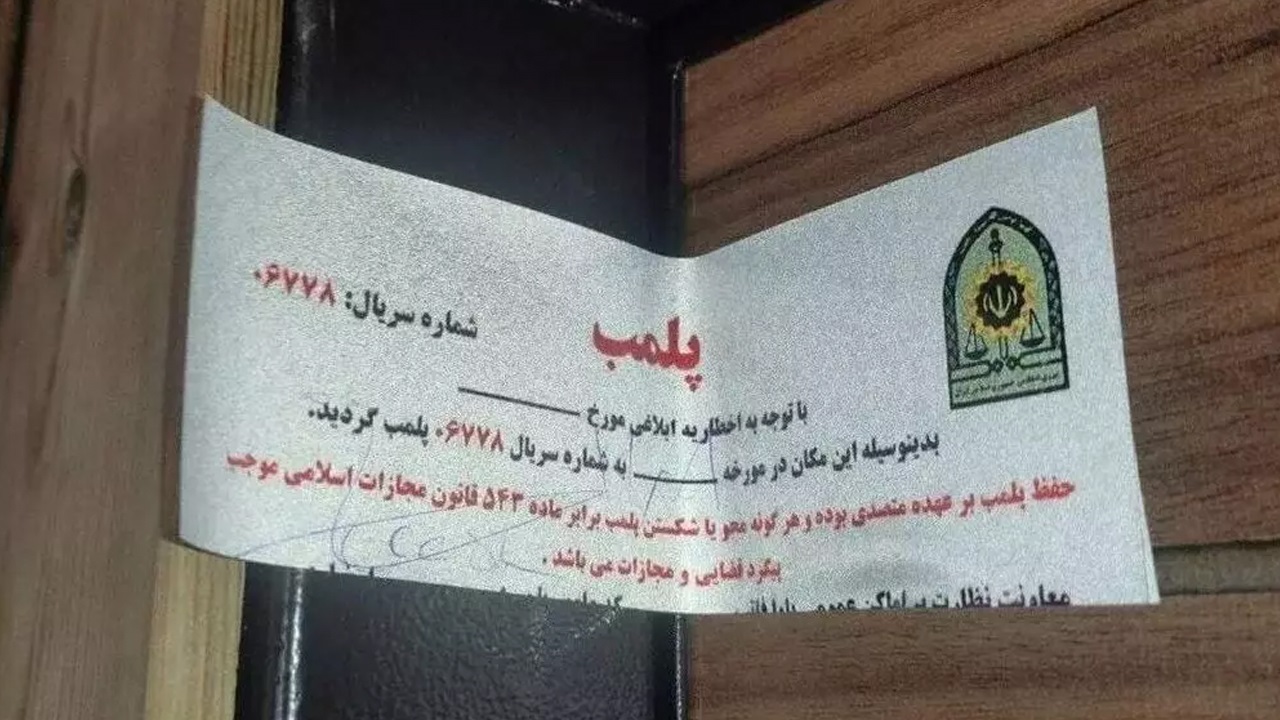 شماره سریال: ۰۶۷۷۸
پلمب
با توجه به اخطاریه ابلاغی مورخ
بدینوسیله این مکان در مورخه ______ به شماره سریال ۰۶۷۷۸ پلمب گردید.
حفظ پلمب بر عهده متصدی بوده و هر گونه محو یا شکستن پلمب برابر ماده ۵۴۳ قانون مجازات اسلامی موجب
پیگرد قضایی و مجازات می باشد .
معاونت نظارت بر اماکن عمومی